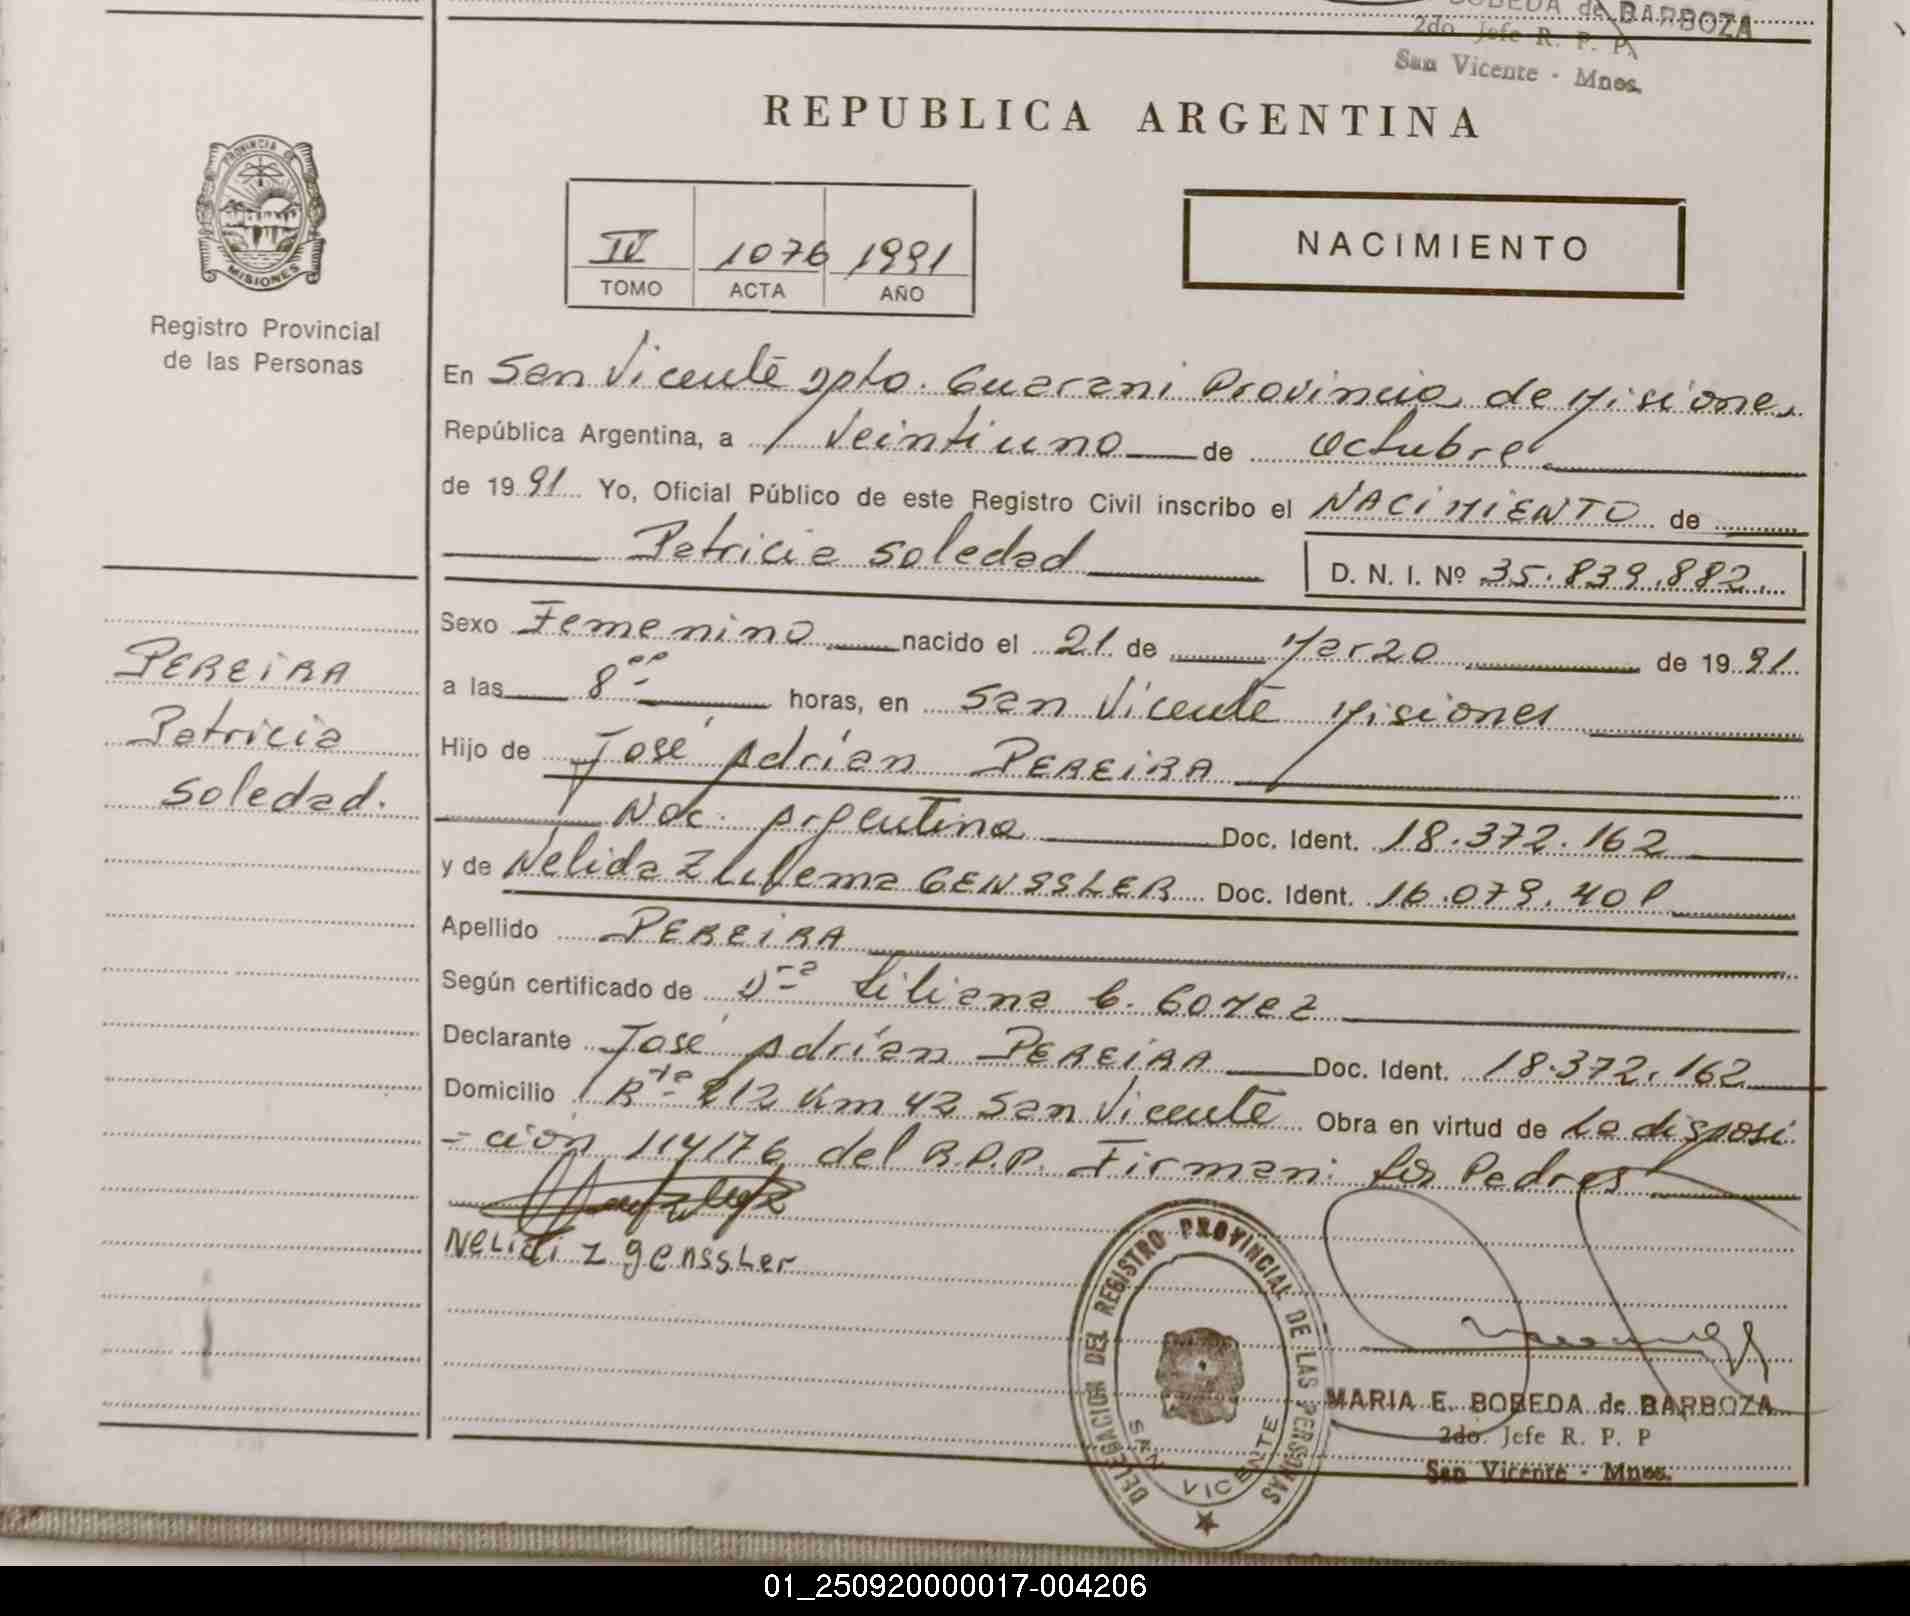 BOBEDA de BARBOZA
2do. Jefe R. P. P.
San Vicente - Mnes.
REPUBLICA ARGENTINA
PROVINCIA DE
MISIONES
Registro Provincial
de las Personas
IV 1076 1991
TOMO ACTA AÑO
NACIMIENTO
En San Vicente Dpto. Guarani Provincia de Misiones
República Argentina, a veintiuno de octubre
de 1991 Yo, Oficial Público de este Registro Civil inscribo el NACIMIENTO de
Patricia Soledad D. N. I. Nº 35.839.882.
Sexo Femenino nacido el 21 de Marzo de 1991
a las 8 oo horas, en San Vicente Misiones
Hijo de José Adrián PEREIRA
Nac. Argentina Doc. Ident. 18.372.162
y de Nelida Zulema GENSSLER Doc. Ident. 16.079.401
Apellido PEREIRA
Según certificado de Dra Liliana C. Gomez
Declarante José Adrián PEREIRA Doc. Ident. 18.372.162
Domicilio Rta 212 Km 42 San Vicente Obra en virtud de La disposi
=ción 114/76 del R.P.P. Firman: los Padres
Nelidi z genssler
PEREIRA
Patricia
Soledad.
DELEGACION DEL REGISTRO PROVINCIAL DE LAS PERSONAS
SAN VICENTE
MARIA E. BOBEDA de BARBOZA
2do. Jefe R. P. P
San Vicente - Mnes.
01_250920000017-004206